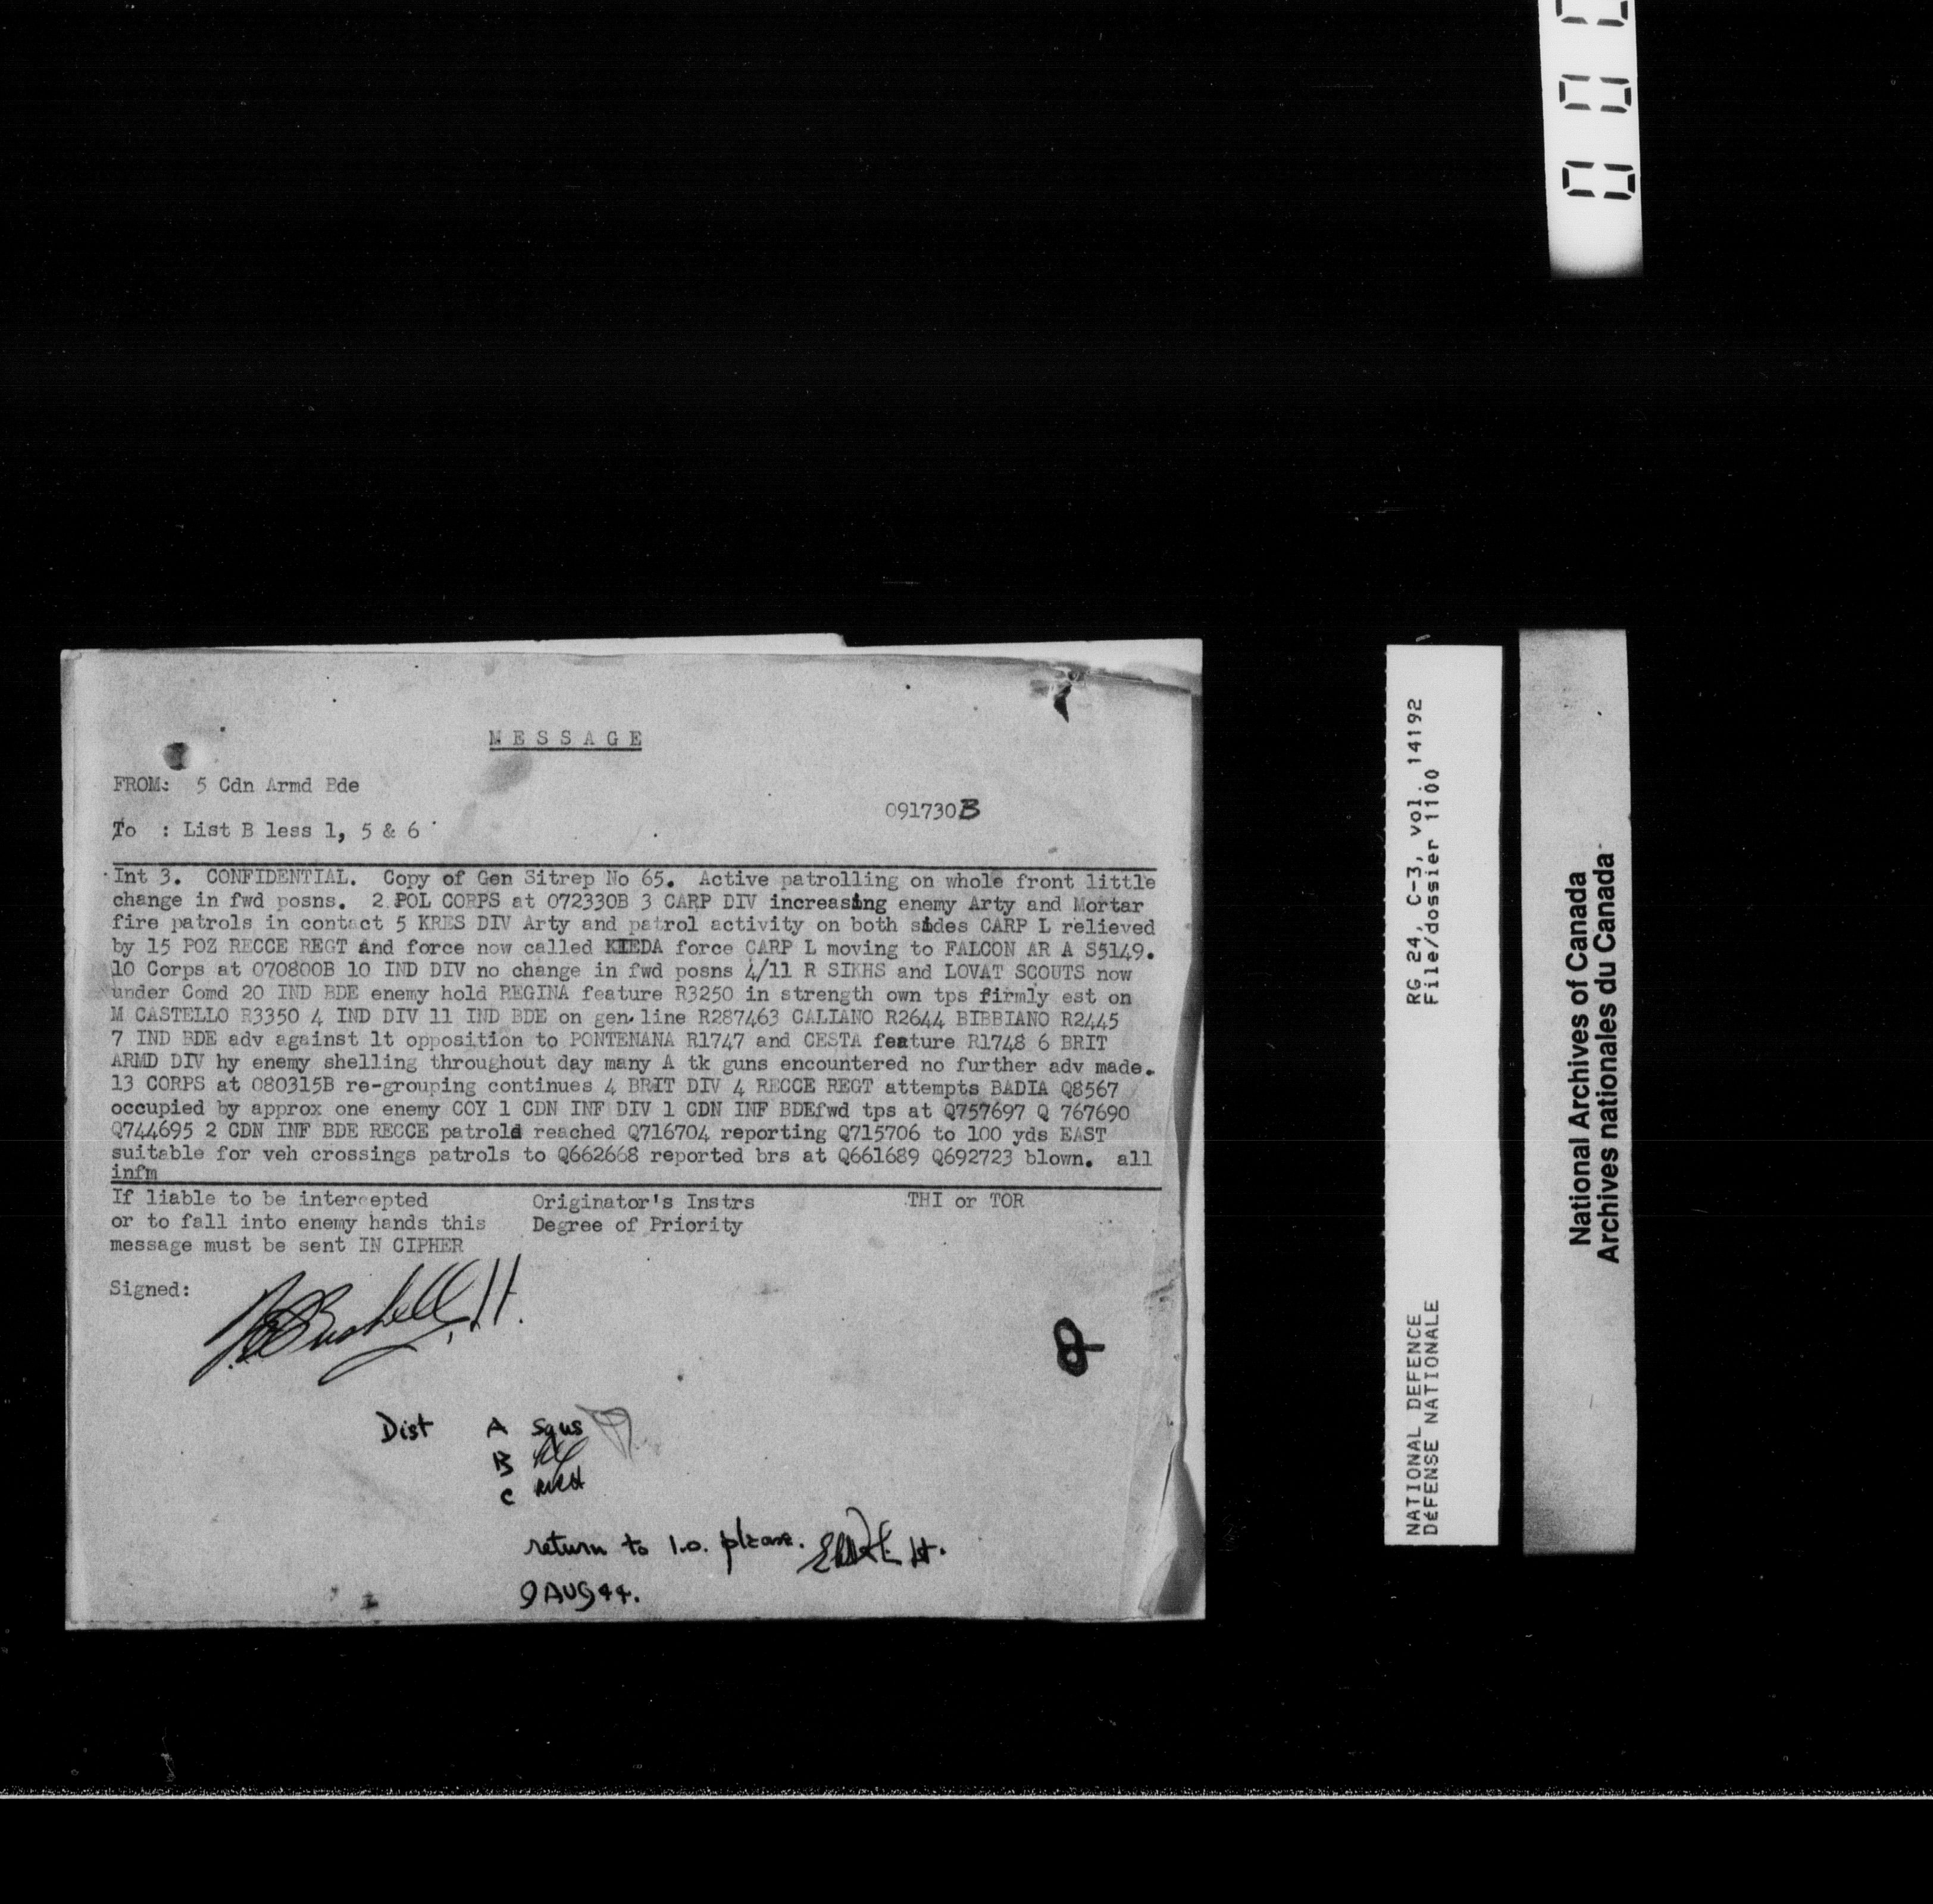 MESSAGE
FROM: 5 Cdn Armd Bde
091730B
To : List B less 1, 5 & 6
Int 3. CONFIDENTIAL. Copy of Gen Sitrep No 65. Active patrolling on whole front little
change in fwd posns. 2 POL CORPS at 072330B 3 CARP DIV increasing enemy Arty and Mortar
fire patrols in contact 5 KRES DIV Arty and patrol activity on both sides CARP L relieved
by 15 POZ RECCE REGT and force now called KIEDA force CARP L moving to FALCON AR A S5149.
10 Corps at 070800B 10 IND DIV no change in fwd posns 4/11 R SIKHS and LOVAT SCOUTS now
under Comd 20 IND BDE enemy hold REGINA feature R3250 in strength own tps firmly est on
M CASTELLO R3350 4 IND DIV 11 IND BDE on gen line R287463 CALIANO R2644 BIBBIANO R2445
7 IND BDE adv against lt opposition to PONTENANA R1747 and CESTA feature R1748 6 BRIT
ARMD DIV hy enemy shelling throughout day many A tk guns encountered no further adv made.
13 CORPS at 080315B re-grouping continues 4 BRIT DIV 4 RECCE REGT attempts BADIA Q8567
occupied by approx one enemy COY 1 CDN INF DIV 1 CDN INF BDEfwd tps at Q757697 Q 767690
Q744695 2 CDN INF BDE RECCE patrols reached Q716704 reporting Q715706 to 100 yds EAST
suitable for veh crossings patrols to Q662668 reported brs at Q661689 Q692723 blown. all
infm
If liable to be intercepted
or to fall into enemy hands this
message must be sent IN CIPHER
Originator's Instrs
Degree of Priority
THI or TOR
Signed:
Dist A Sqns
B
C
return to I.O. please.
9 AUG 44.
RG 24, C-3, vol. 14192
File/dossier 1100
NATIONAL DEFENCE
DÉFENSE NATIONALE
National Archives of Canada
Archives nationales du Canada